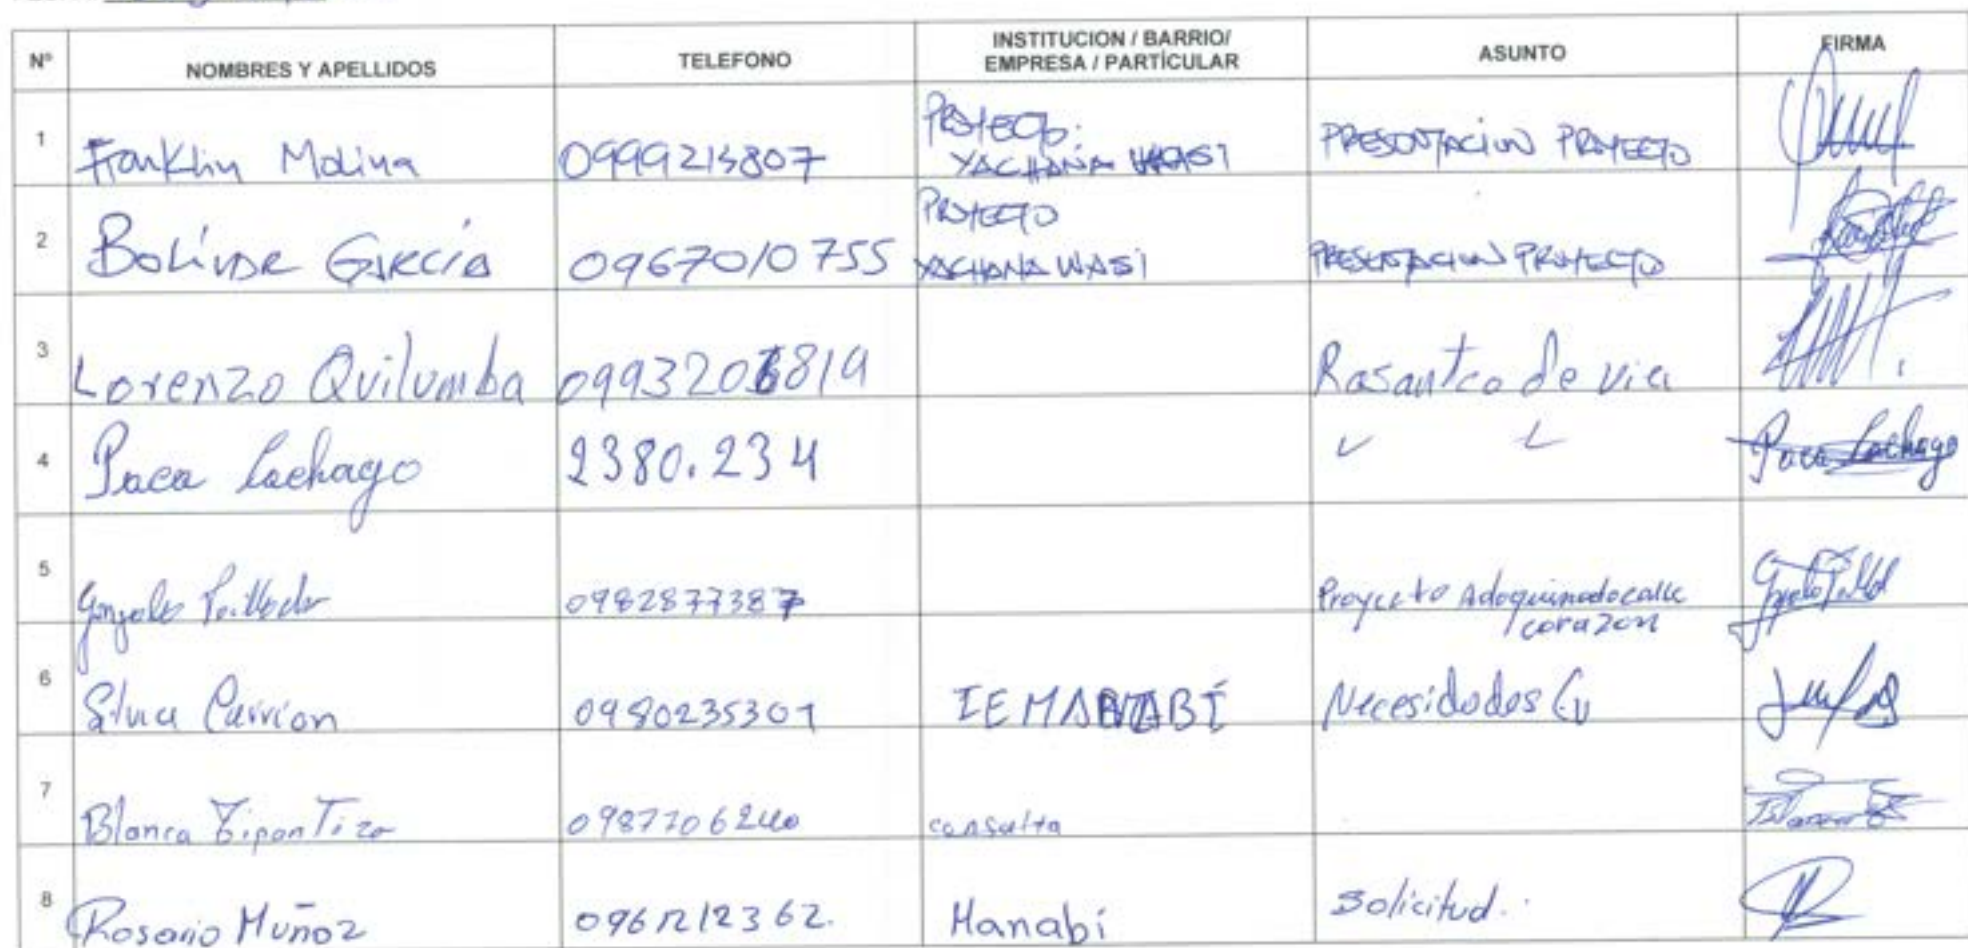 Nº NOMBRES Y APELLIDOS TELEFONO INSTITUCION / BARRIO/ EMPRESA / PARTÍCULAR ASUNTO FIRMA
1 Franklin Molina 0999213807 PROYECTO: YACHANA WASI PRESENTACION PROYECTO
2 Bolívar García 0967010755 PROYECTO YACHANA WASI PRESENTACION PROYECTO
3 Lorenzo Quilumba 0993206819 Rasanteo de via
4 Paca Cachago 2380.234 Paca Cachago
5 Gonzalo 0982877387 Proyecto Adoquinado calle corazon
6 Silvia Carrion 0980235301 IE MANABÍ Necesidades
7 Blanca 0987706240 consulta Blanca
8 Rosario Muñoz 0961212362. Manabí Solicitud.